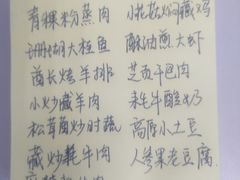 青稞粉蒸肉
珊瑚大鲑鱼
酋长烤羊排
小炒藏羊肉
松茸菌炒时蔬
藏炒牦牛肉
小花菇焖藏鸡
酥油煎大虾
芝贡干巴肉
牦牛酸奶
高原小土豆
人参果老豆腐